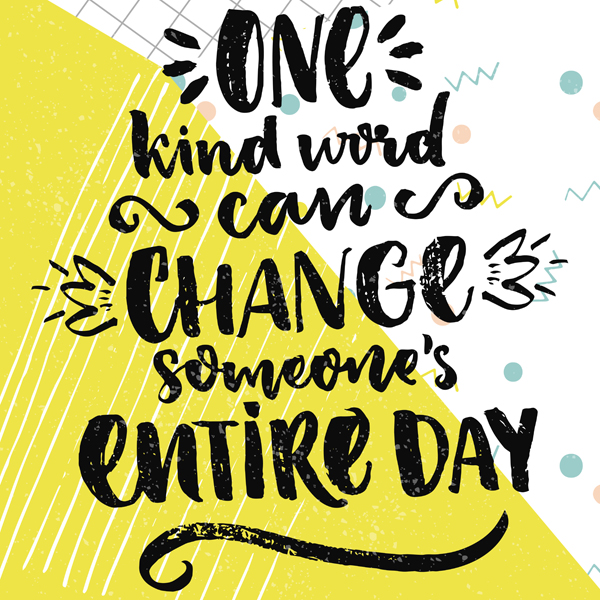 ONE
kind word
can
CHANGE
someone's
ENTIRE DAY